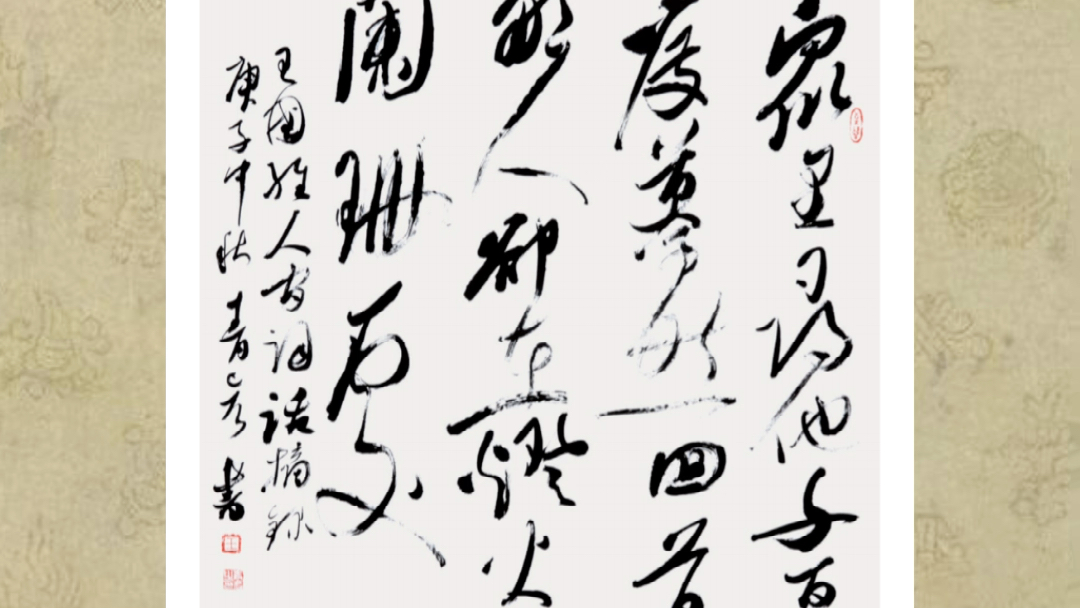 眾里尋他千百
度驀然回首
那人卻在燈火
闌珊處
王國維人间词话摘録
庚子中秋青書